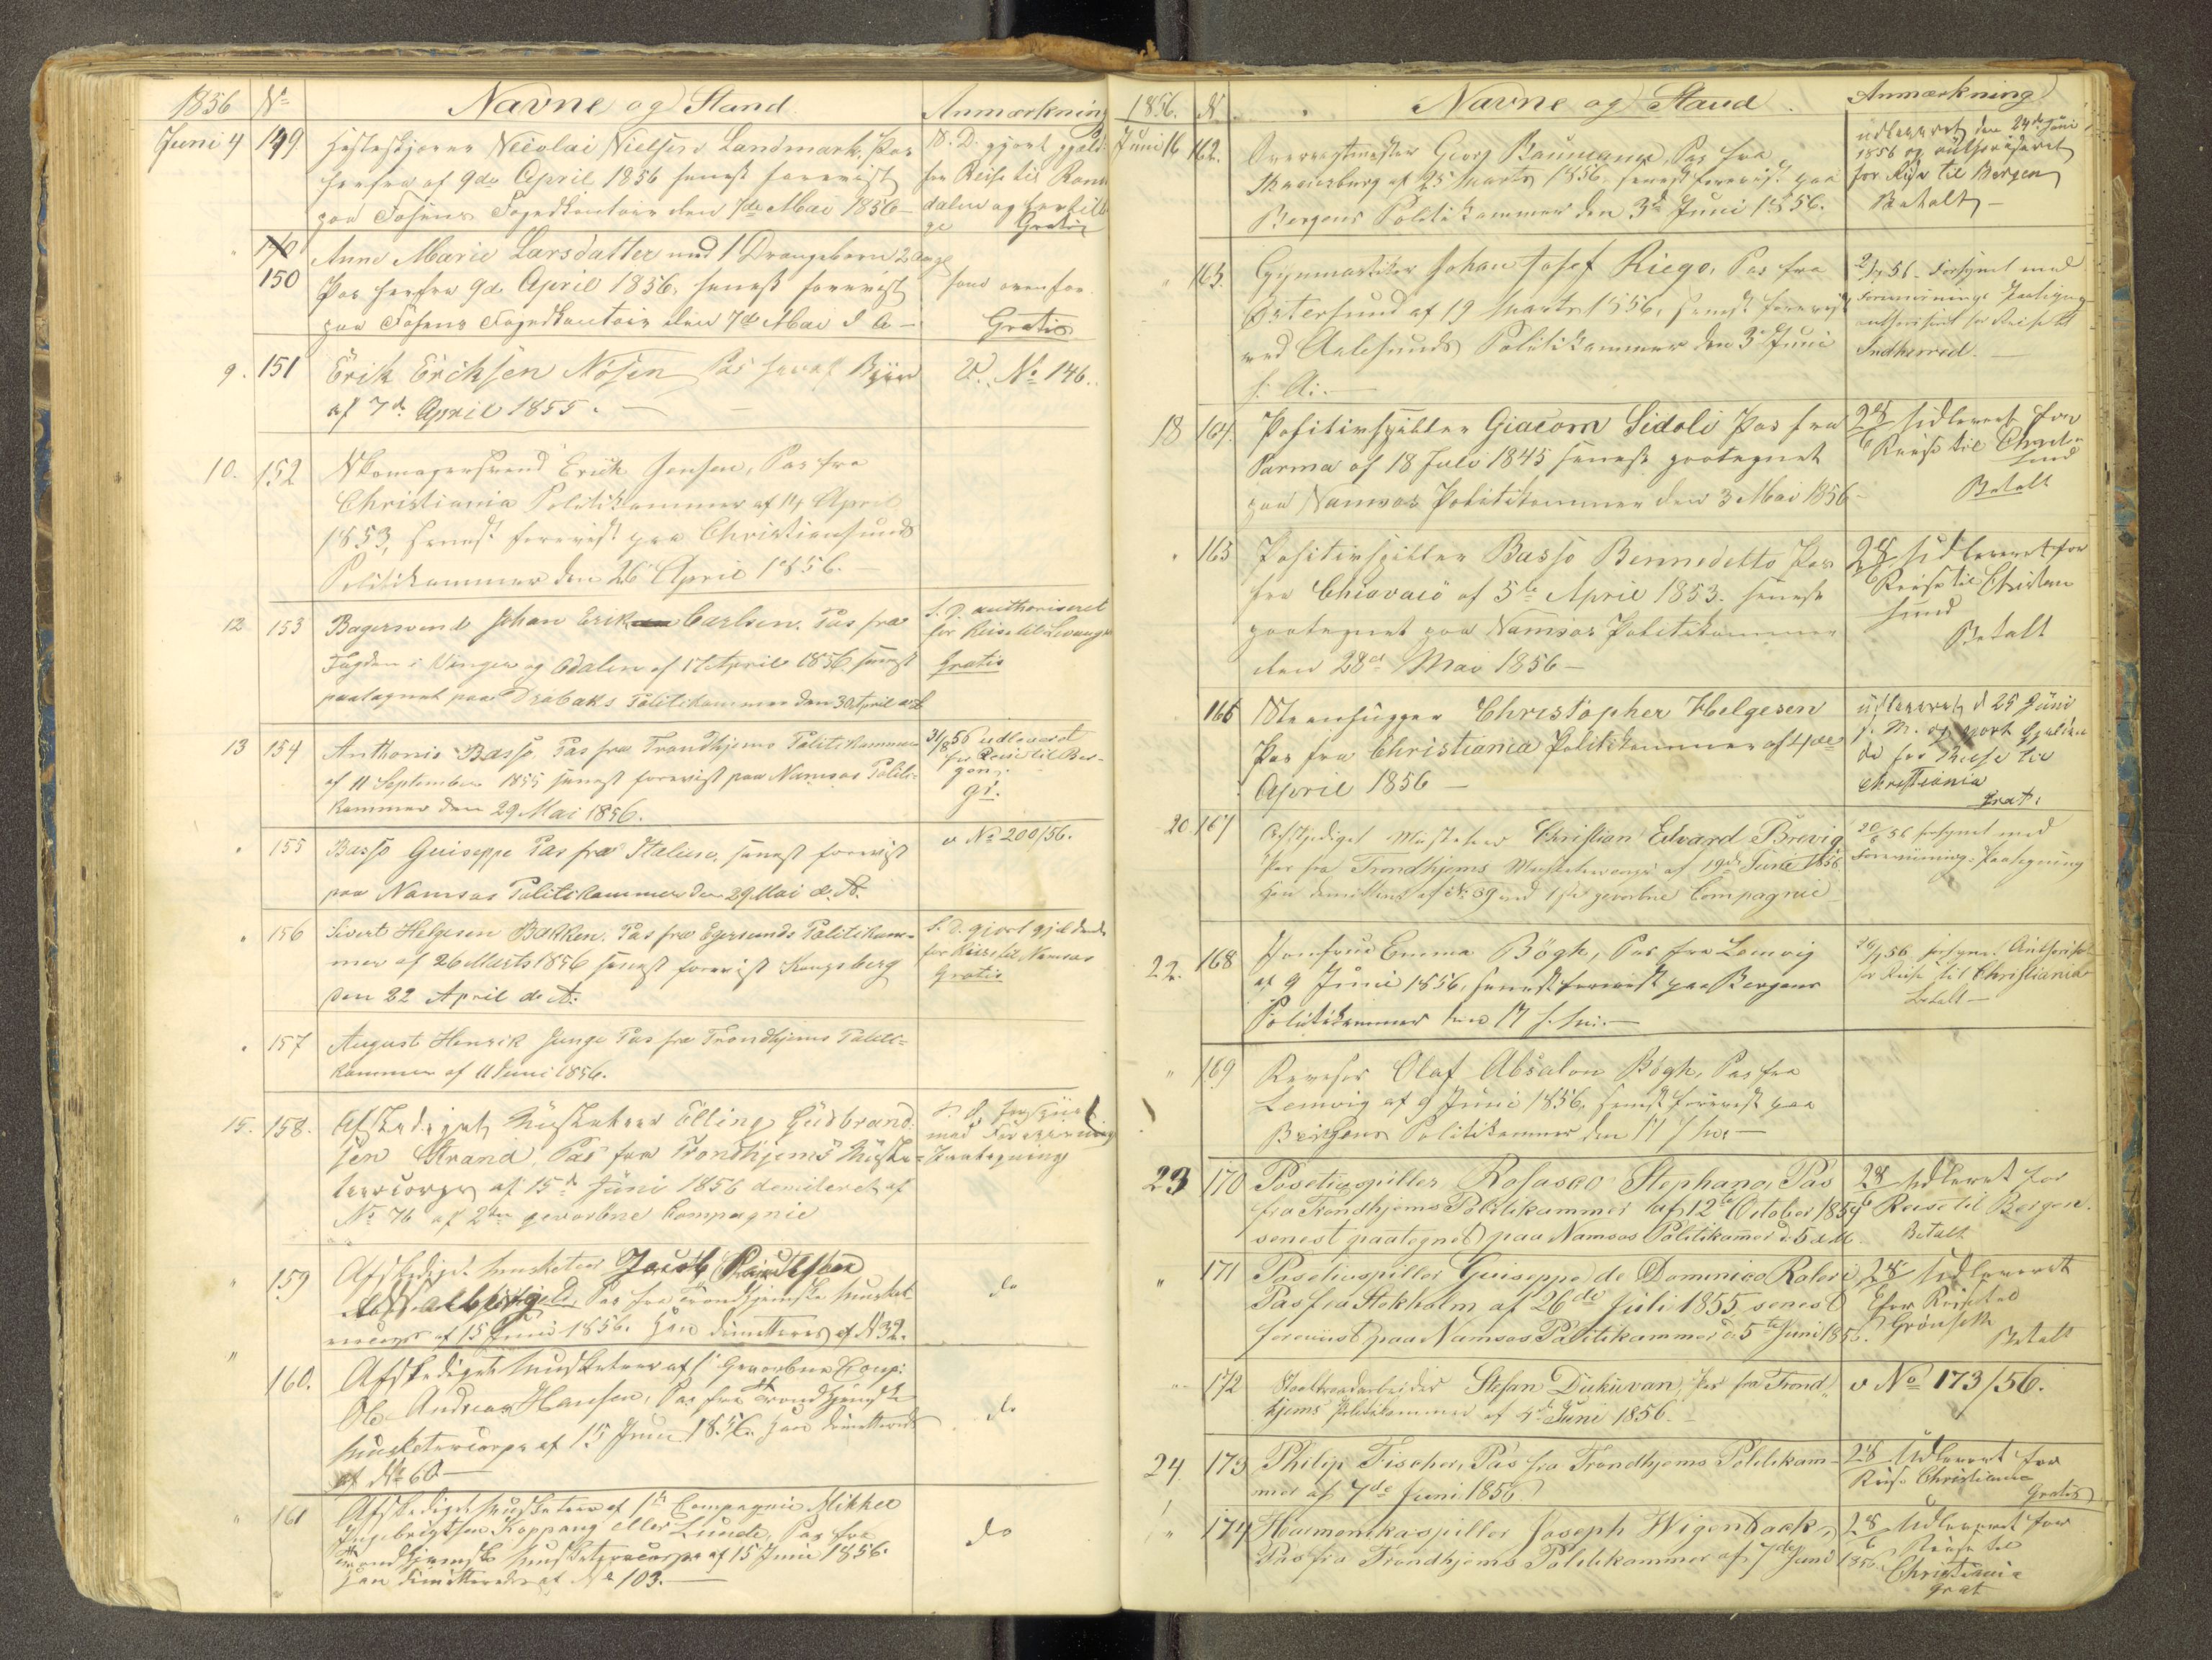 1856 No Navne og Stand Anmærkning
Juni 4 149 Nicolai Nielsen Landmark, Pas S. D. gjort gjeld.
herfra af 9de April 1856 senest forevist for Reise til Roms
paa Fosens Fogedkontoir den 7de Mai 1856 – dalen og
Gratis
" 150 Anne Marie Larsdatter med 1 Drengebarn 2 Aar gl
Pas herfra 9de April 1856, senest forevist som ovenfor
paa Fosens Fogedkontoir den 7de Mai d A – Gratis
9. 151 Erik Eriksen Nosen Pas V. No 146.
af 7de April 1855. –
10. 152 Skomagersvend Erik Jensen, Pas fra
Christiania Politikammer af 14 April
1853, senest forevist paa Christiansunds
Politikammer den 26 April 1856. –
12 153 Bagersvend Johan Erik Carlsen. Pas fra S. D. authoriseret
Fogden i Vinger og Odalen af 17 April 1856 senest for Reise til Levanger
paategnet paa Drøbaks Politikammer den 30 April Gratis
13 154 Anthonio Basso, Pas fra Trondhjems Politikammer 31/8 56 udleveret
af 11 September 1855 senest forevist paa Namsos Politi- for Reise til Ber-
kammer den 29 Mai 1856. gen.
gr.
" 155 Basso Guiseppe Pas fra Italien, senest forevist v No 200/56.
paa Namsos Politikammer den 29 Mai d. A.
" 156 Sivert Helgesen Bakken. Pas fra Egersunds Politikam- S. D. gjort gjeldende
mer af 26 Marts 1856 senest forevist Kongsberg for Reise til Namsos
den 22 April d. A. Gratis
" 157 August Henrik Junge Pas fra Trondhjems Politi-
kammer af 11 Juni 1856.
15. 158. Afskediget Musketeer Elling Gudbrand- S. D. forsynet
sen Strand, Pas fra Trondhjems Muske- med Forevisnings
teercorps af 15de Juni 1856 demiteret af Paategning
No 76 af 2den gevorbne Compagnie
" 159 Afskediget Musketeer Jacob
Pas fra Trondhjemske Musket- do
eercorps af 15 Juni 1856. Han dimitteres af N 32.
" 160. Afskediget Musketeer af 1 Gevorbne Comp:
Ole Andreas Hansen, Pas fra Trondhjemske
Musketeercorps af 15 Juni 1856. Han dimitteredes do
af No 60 –
" 161 Afskediget Musketeer af 1ste Compagnie Mikkel
Ingebrigtsen Koppang eller Lunde, Pas fra
Trondhjemske Musketeercorps af 15 Juni 1856. do
Han dimitteredes af No 103. –
1856. N. Navne og Stand. Anmærkning
Juni 16 162. Georg Baumann, Pas fra udleveret den 24de Juni
af 25 Marts 1856, senest forevist paa 1856 og authoriseret
Bergens Politikammer den 3de Juni 1856. for Reise til Bergen
Betalt –
" 163. Gymnastiker Johan Josef Riego, Pas fra 2/7 56. Forsynet med
Østersund af 19 Marts 1856, senest forevist Forevisnings Paategning
ved Aalesunds Politikammer den 3 Juni authoriseret for Reise til
s. A. – Indherred. –
18 164. Positivspiller Giacom Sidoli Pas fra 28/6 Udleveret for
Parma af 18 Juli 1845 senest paategnet Reise til Christian
paa Namsos Politikammer den 3 Mai 1856 – sund
Betalt
" 165 Positivspiller Basso Bennedetto Pas 28/6 Udleveret for
fra Chiavaio af 5te April 1853. senest Reise til Christian
paategnet paa Namsos Politikammer sund
den 28de Mai 1856 – Betalt
166 Steenhugger Christopher Helgesen udleveret d 25 Juni
Pas fra Christiania Politikammer af 4de og gjort Gjelden
April 1856 – de for Reise til
Christiania
Grat:
20 167 Afskediget Musketeer Christian Edvard Brevig 20/6 56 forsynet med
Pas fra Trondhjems Musketeercorps af 19de Juni 1856 Forevisnings Paategning
han demitteret af N. 39 ved 1ste gevorbne Compagnie
22. 168 Jomfrue Emma Bögh, Pas fra Lemvig forsynet Authorisat
af 9 Juni 1856, senest forevist paa Bergens for Reise til Christiania
Politikammer den 17 s. M. – Betalt –
" 169 Olaf Absalon Bögh, Pas fra
Lemvig af 9 Juni 1856, senest forevist paa
Bergens Politikammer den 17 s. M. –
23 170 Posetivspiller Rosasco Stephano, Pas 28/6 Udleveret for
fra Trondhjems Politikammer af 12te October 1854 Reise til Bergen.
senest paategnet paa Namsos Politikamer d: 5 d M. Betalt
" 171 Posetivspiller Guiseppe de Domenico Roleri 28/6 Udleveret
Pas fra Stokholm af 26de Juli 1855 senest for Reise til
foreviist paa Namsos Politikammer d. 5te Juni 1856. Betalt
" 172 Staaltraadarbeider Stefan Diukuvan, Pas fra Trond- v No 173/56.
hjems Politikammer af 4de Juni 1856. –
24. 173 Philip Fischer, Pas fra Trondhjems Politikam- 28/6 Udleveret for
mer af 7de Juni 1856 Reise Christiania
Gratis
" 174 Harmonikaspiller Joseph Wigenback, 28/6 Udleveret for
Pas fra Trondhjems Politikammer af 7de Juni 1856. Reise til
Christiania
Grat